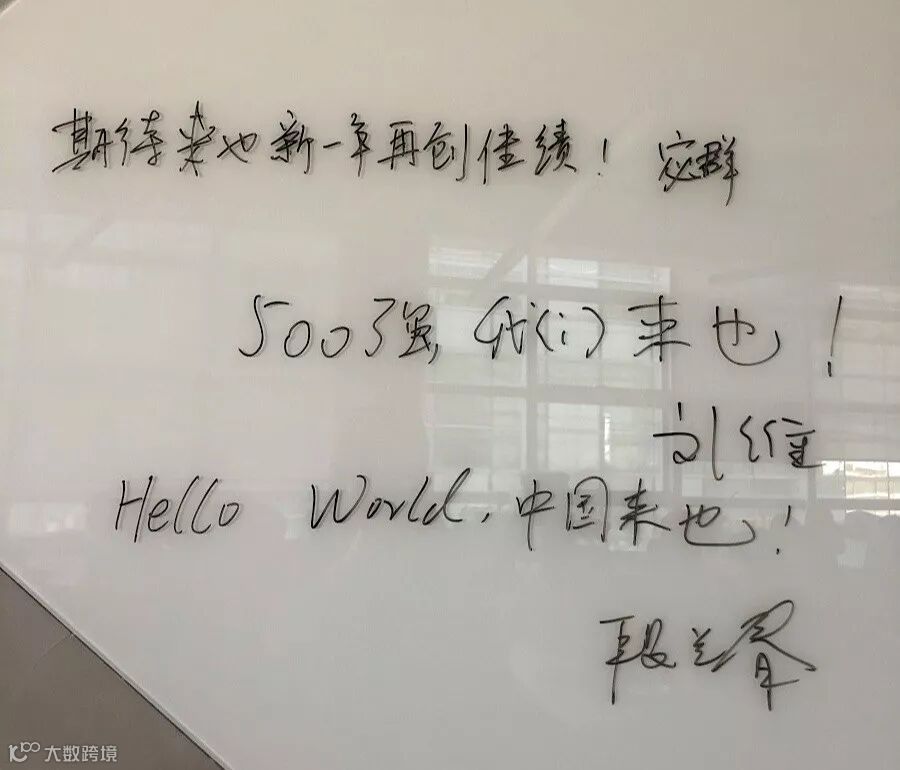 期待来也新一年再创佳绩！ 宓群
500强,我们来也！
刘维
Hello World,中国来也！
段兰春
大数跨境